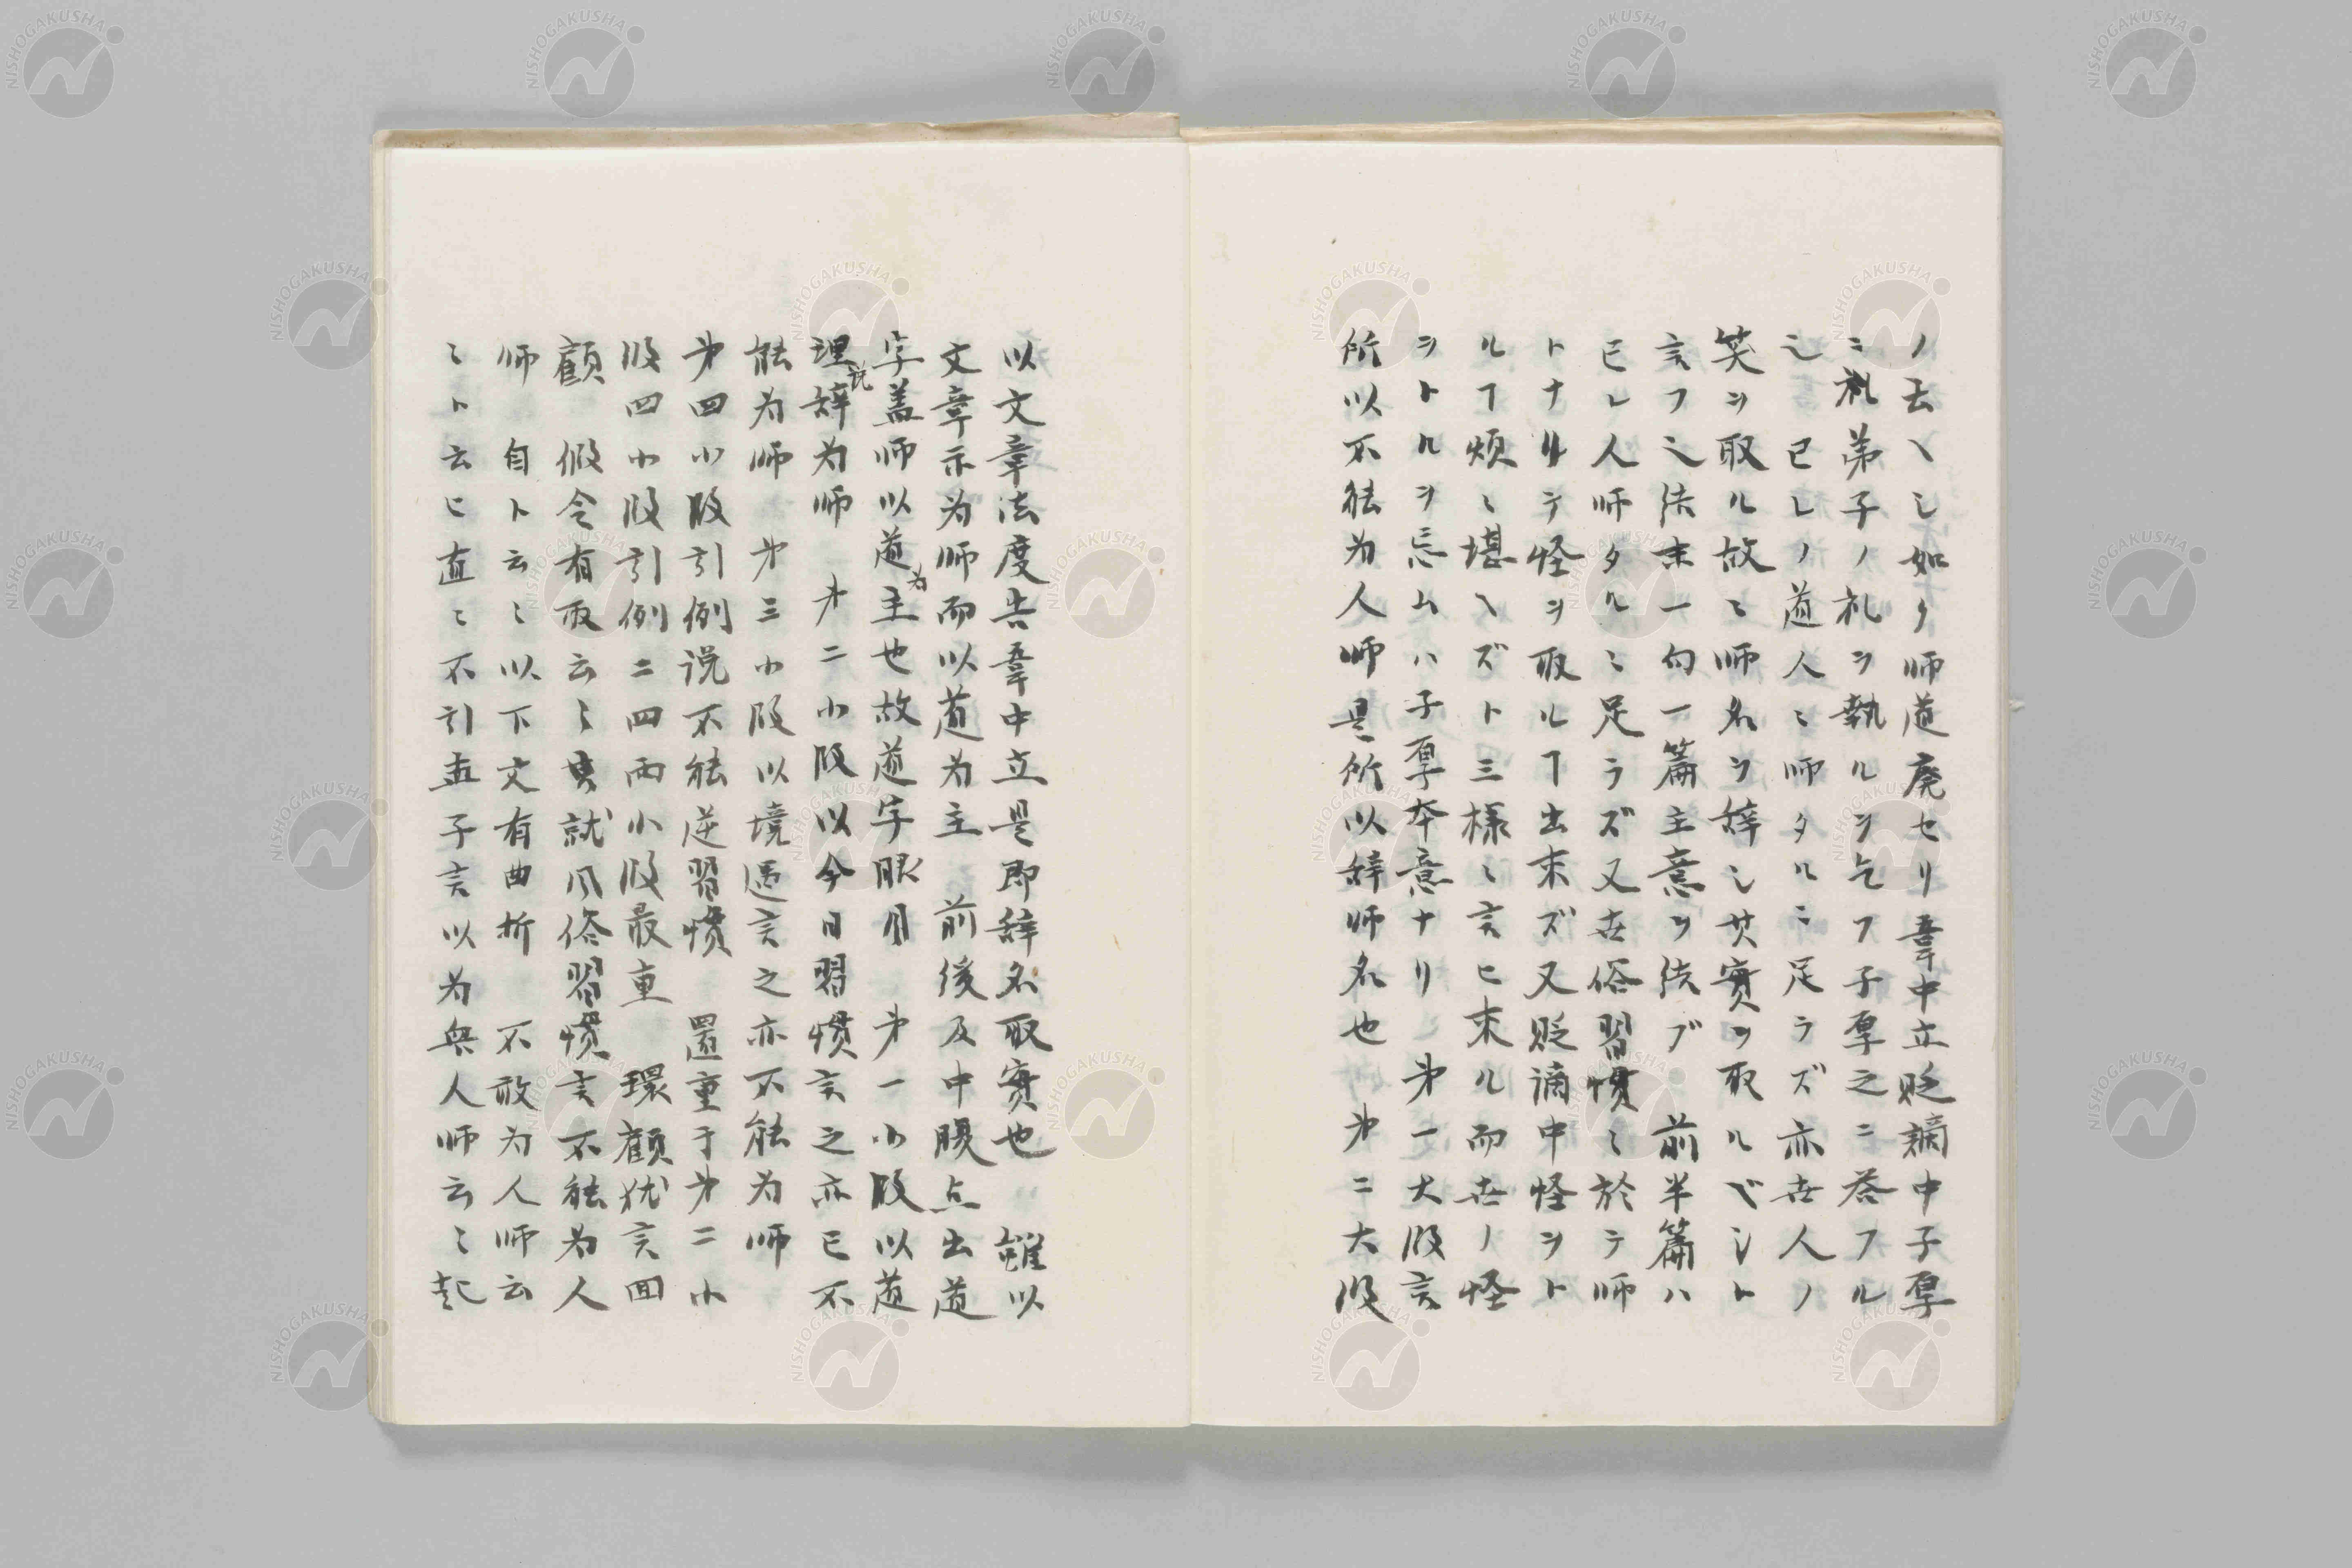 ノ去ヘシ如ク師道廃セリ韋中立貶謫中子厚
ニ礼弟子ノ礼ヲ執ルヲ乞フ子厚之ニ答フル
ニ已レノ道人ミ師タルニ足ラズ亦世人ノ
笑ヲ取ル故ミ師名ヲ辞シ其實ヲ取ルベシト
言フ之法末一句一篇主意ヲ法ブ　前半篇ハ
已レ人師タルミ足ラズ又世俗習慣ミ於テ師
トナリテ怪ヲ取ルヿ出来ズ又貶謫中怪ヲト
ルヿ煩ミ堪ヘズト三様ミ言ヒ来ル而世ノ怪
ヲトルヲ忌ムハ子厚本意ナリ　第一大段言
所以不能為人師是所以辞師名也　第二大段
以文章法度告韋中立是即辞名取實也　雖以
文章示為師而以道為主　前後及中腰点出道
字蓋師以道為主也故道字眼目　第一小段以道
理説辞為師　第二小段以今日習慣言之亦已不
能為師　第三小段以境遇言之亦不能為師
第四小段引例説不能逆習慣　置重于第二小
段四小段引例二四両小段最重　環顧猶言回
顧　假令有取云ミ曳就風俗習慣言不能為人
師　自ト云ミ以下文有曲折　不敢為人師云
ミト云ヒ直ミ不引孟子言以為無人師云ミ起
NISHOGAKUSHA